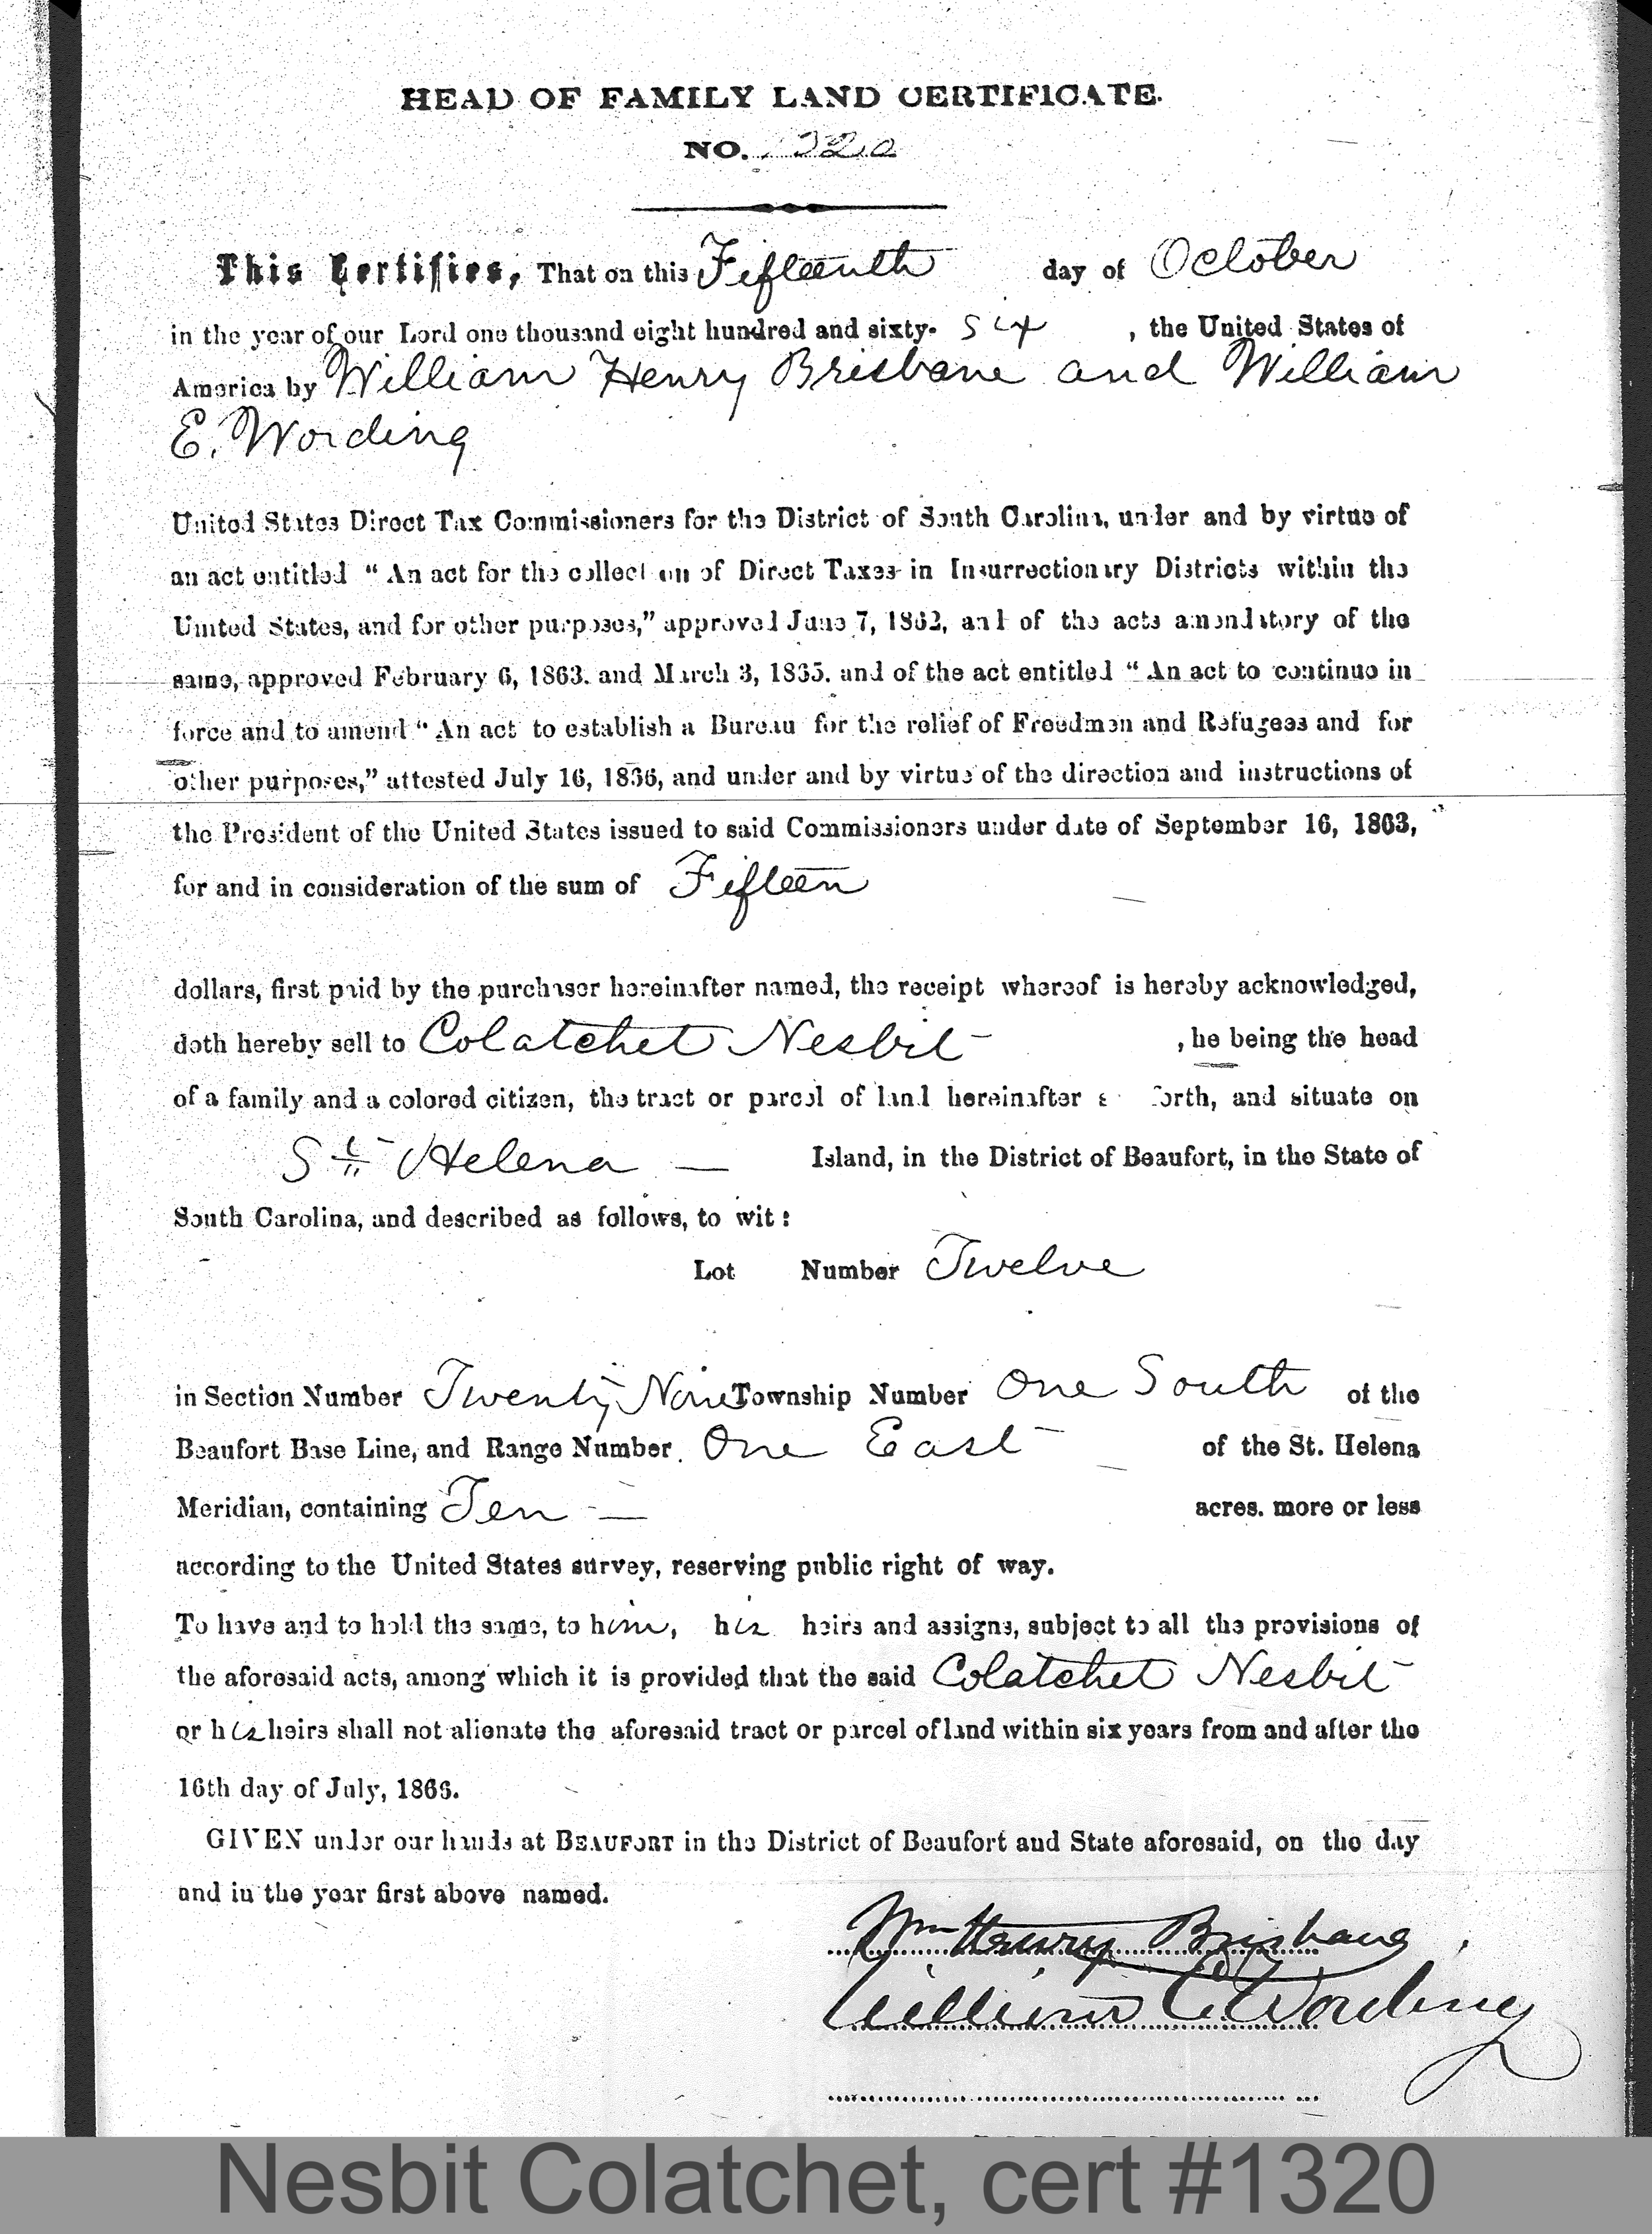 HEAD OF FAMILY LAND CERTIFICATE.
NO. 1320
This Certifies, That on this Fifteenth day of October
in the year of our Lord one thousand eight hundred and sixty- six , the United States of
America by William Henry Brisbane and William
E. Wording
United States Direct Tax Commissioners for the District of South Carolina, under and by virtue of
an act entitled “An act for the collection of Direct Taxes in Insurrectionary Districts within the
United States, and for other purposes,” approved June 7, 1862, and of the acts amendatory of the
same, approved February 6, 1863. and March 3, 1865. and of the act entitled “An act to continue in
force and to amend “An act to establish a Bureau for the relief of Freedmen and Refugees and for
other purposes,” attested July 16, 1866, and under and by virtue of the direction and instructions of
the President of the United States issued to said Commissioners under date of September 16, 1863,
for and in consideration of the sum of Fifteen
dollars, first paid by the purchaser hereinafter named, the receipt whereof is hereby acknowledged,
doth hereby sell to Colatchet Nesbit , he being the head
of a family and a colored citizen, the tract or parcel of land hereinafter forth, and situate on
St Helena — Island, in the District of Beaufort, in the State of
South Carolina, and described as follows, to wit:
Lot Number Twelve
in Section Number Twenty Nine Township Number One South of the
Beaufort Base Line, and Range Number One East of the St. Helena
Meridian, containing Ten — acres. more or less
according to the United States survey, reserving public right of way.
To have and to hold the same, to him, his heirs and assigns, subject to all the provisions of
the aforesaid acts, among which it is provided that the said Colatchet Nesbit
or his heirs shall not alienate the aforesaid tract or parcel of land within six years from and after the
16th day of July, 1866.
GIVEN under our hands at BEAUFORT in the District of Beaufort and State aforesaid, on the day
and in the year first above named.
Wm Henry Brisbane
William E. Wording
Nesbit Colatchet, cert #1320